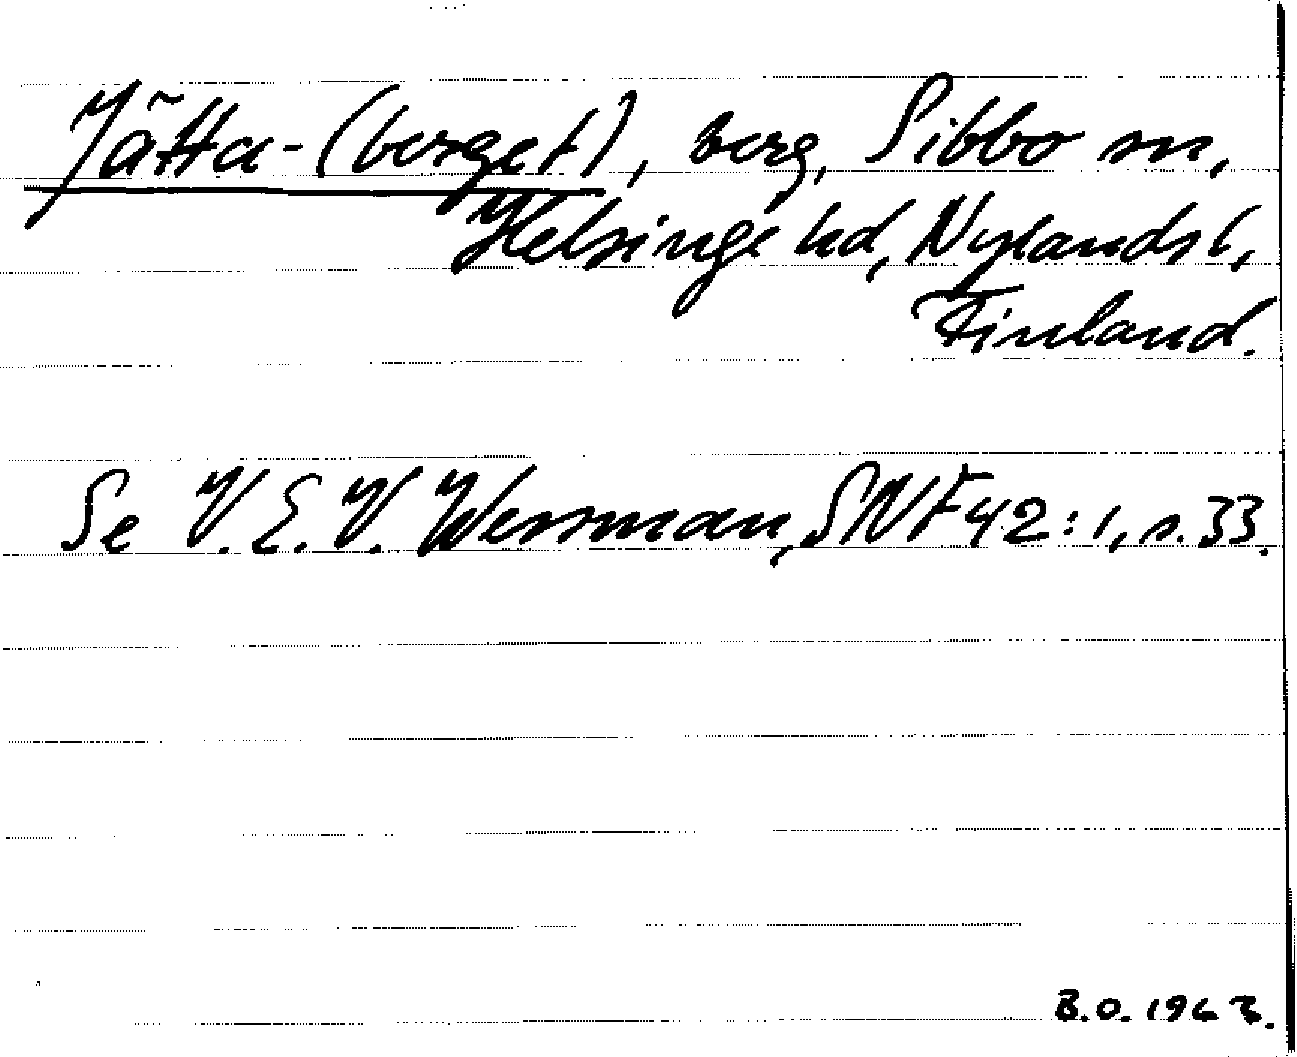 Jätta-(berget), berg, Sibbo sn,
Helsinge hd, Nylands l,
Finland.
Se V.E.V. Wessman, SNF 42:1, s. 33.
B.O. 1963.